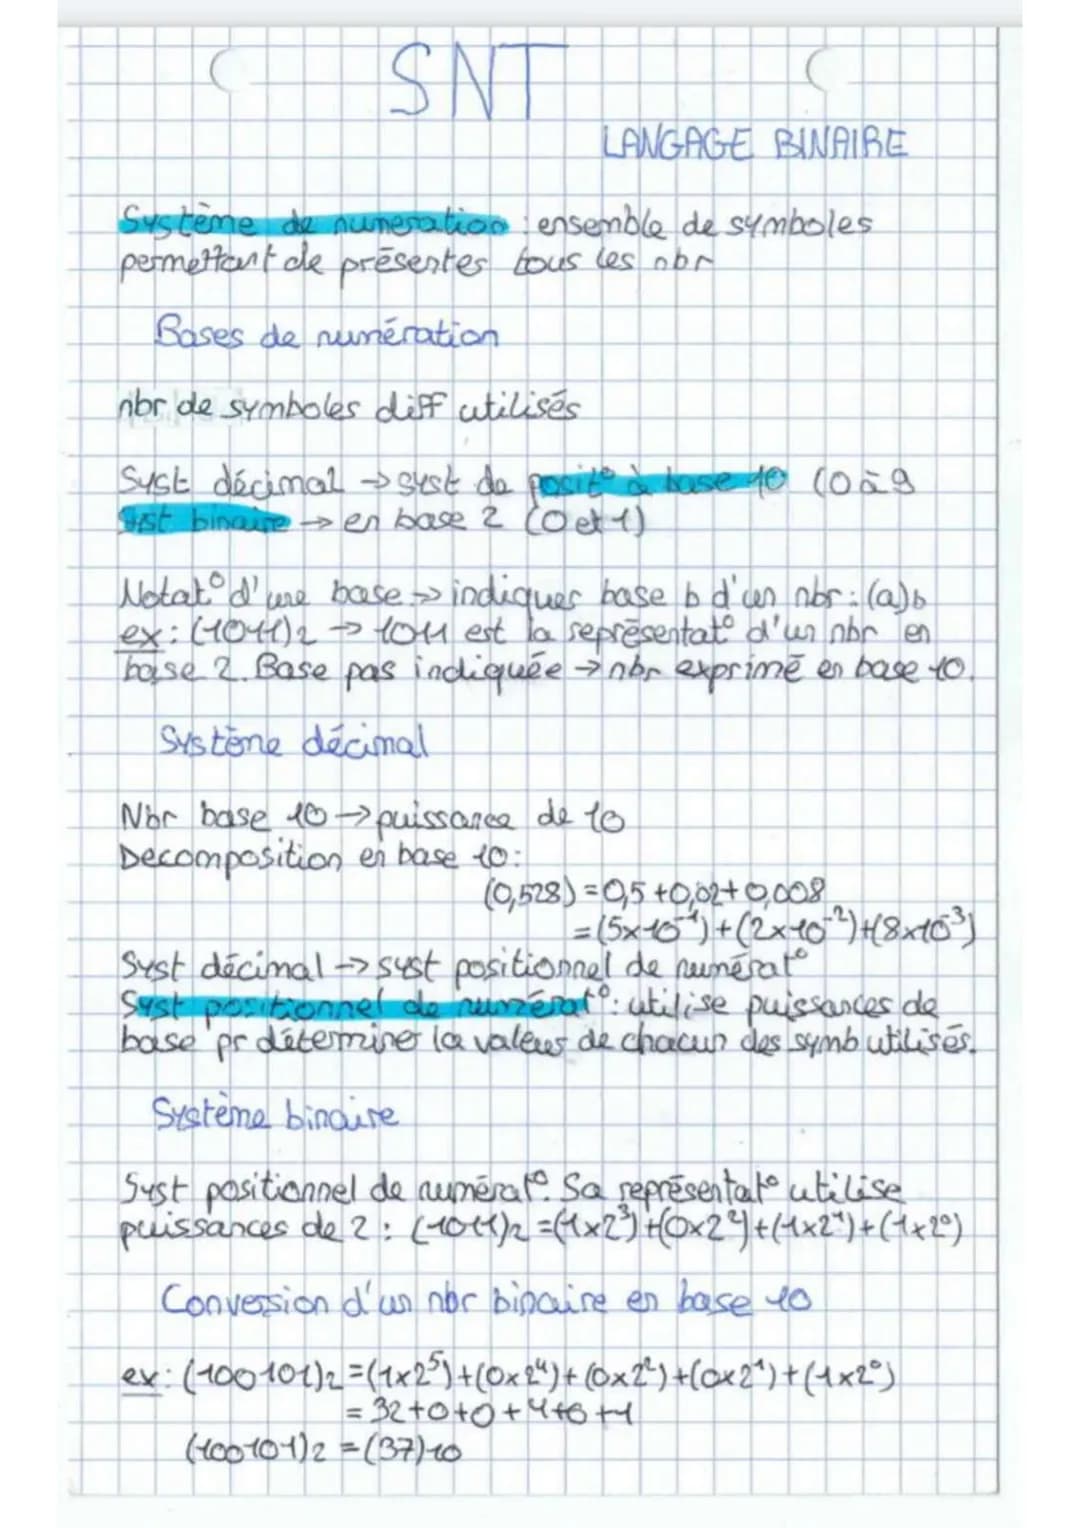 SNT
LANGAGE BINAIRE
Système de numeration : ensemble de symboles
permettant de présenter tous les nbr
Bases de numération
nbr de symboles diff utilisés
Syst décimal → syst de posit° à base 10 (0 à 9
syst binaire → en base 2 (0 et 1)
Notat° d'une base → indiquer base b d'un nbr : (a)b
ex : (1011)2 → 1011 est la représentat° d'un nbr en
base 2. Base pas indiquée → nbr exprimé en base 10.
Système décimal
Nbr base 10 → puissance de 10
Decomposition en base 10 :
(0,528) = 0,5 + 0,02 + 0,008
= (5x10⁻¹) + (2x10⁻²) + (8x10⁻³)
Syst décimal → syst positionnel de numérat°
Syst positionnel de numérat° : utilise puissances de
base pr déterminer la valeur de chacun des symb utilisés.
Système binaire
Syst positionnel de numérat°. Sa représentat° utilise
puissances de 2 : (1011)2 = (1x2³) + (0x2²) + (1x2¹) + (1x2⁰)
Conversion d'un nbr binaire en base 10
ex : (100101)2 = (1x2⁵) + (0x2⁴) + (0x2²) + (0x2¹) + (1x2⁰)
= 32+0+0+4+0+1
(100101)2 = (37)10